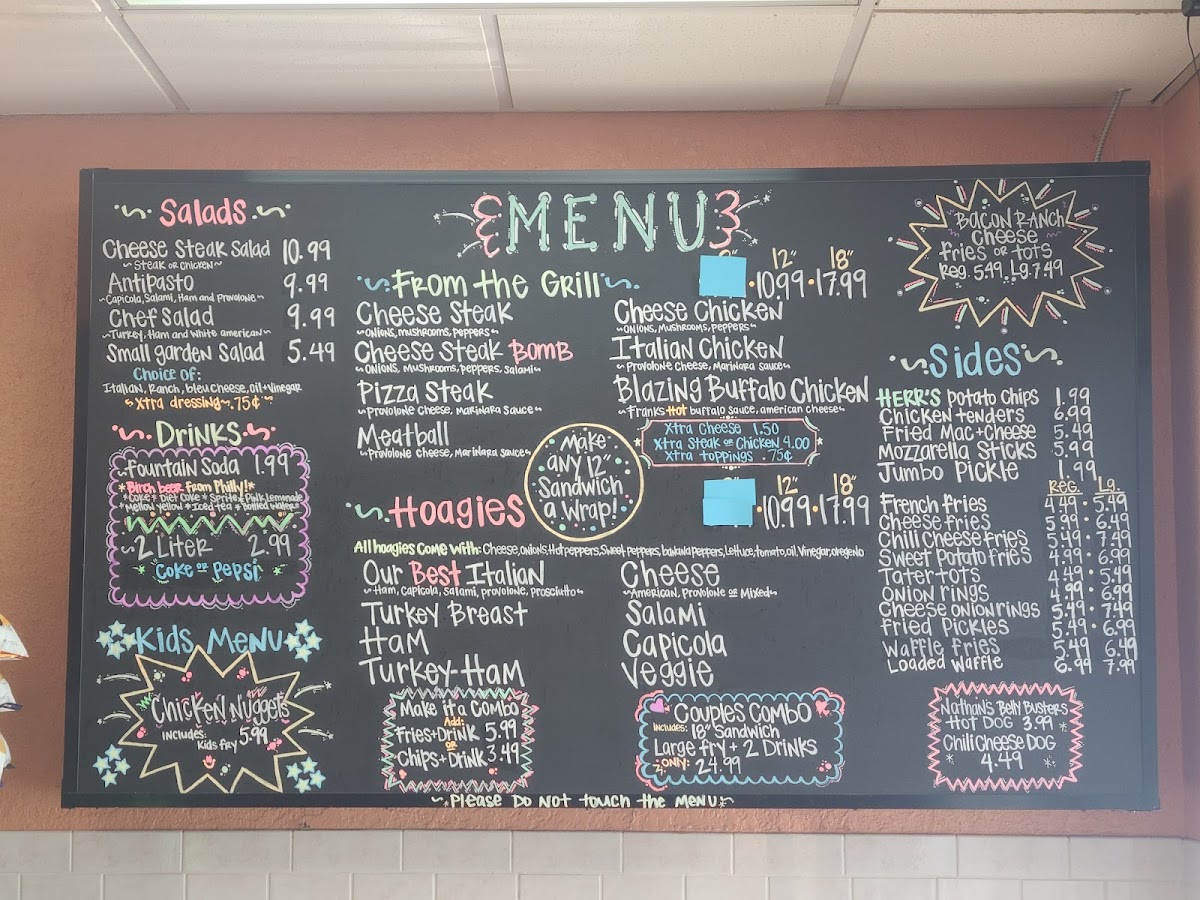 MENU
Salads
Cheese Steak Salad 10.99
~Steak or Chicken~
Antipasto 9.99
~Capicola, Salami, Ham and Provolone~
Chef Salad 9.99
~Turkey, Ham and White american~
Small garden Salad 5.49
Choice of:
Italian, Ranch, bleu cheese, oil+Vinegar
~Xtra dressing~.75¢~
Drinks
fountain Soda 1.99
*Birch beer From Philly!*
*Coke*Diet Coke*Sprite*Pink lemonade
*Mellow yellow*Iced tea*Bottled Waters
~2 Liter 2.99
Coke or Pepsi
Kids Menu
Chicken Nuggets
includes: 5.99
Kids fry
From the Grill
12" 18"
10.99 · 17.99
Cheese Steak
~Onions, mushrooms, peppers~
Cheese Steak Bomb
~Onions, Mushrooms, peppers, Salami~
Pizza Steak
~Provolone Cheese, Marinara Sauce~
Meatball
~Provolone cheese, Marinara Sauce~
Cheese Chicken
~Onions, Mushrooms, peppers~
Italian Chicken
~Provolone Cheese, Marinara Sauce~
Blazing Buffalo Chicken
~Franks Hot buffalo Sauce, american cheese~
Xtra Cheese 1.50
Xtra Steak or Chicken 4.00
Xtra toppings .75¢
Make
any 12"
Sandwich
a Wrap!
Hoagies
12" 18"
10.99 · 17.99
All hoagies Come With: Cheese, onions, Hot peppers, Sweet peppers, banana peppers, Lettuce, tomato, oil, Vinegar, oregeno
Our Best Italian
~Ham, Capicola, Salami, provolone, prosciutto~
Turkey Breast
Ham
Turkey-Ham
Cheese
~American, Provolone or Mixed~
Salami
Capicola
Veggie
Make it a Combo
Add:
Fries+Drink 5.99
or
Chips+Drink 3.49
Couples Combo
includes: 18" Sandwich
Large fry + 2 Drinks
~only: 24.99
~Please Do Not touch the Menu~
Bacon Ranch
Cheese
fries or tots
Reg. 5.49 Lg. 7.49
Sides
HERR'S Potato Chips 1.99
Chicken tenders 6.99
Fried Mac+Cheese 5.49
Mozzarella Sticks 5.99
Jumbo Pickle 1.99
Reg. Lg.
French fries 4.49 · 5.49
Cheese fries 5.99 · 6.49
Chili Cheese fries 5.49 · 7.49
Sweet Potato fries 4.99 · 6.99
Tater tots 4.49 · 5.49
Onion rings 4.99 · 6.99
Cheese onion rings 5.49 · 7.49
fried Pickles 5.49 · 6.99
Waffle fries 5.49 6.49
Loaded Waffle 6.99 7.99
Nathan's Belly Busters
Hot Dog 3.99
Chili Cheese Dog
4.49